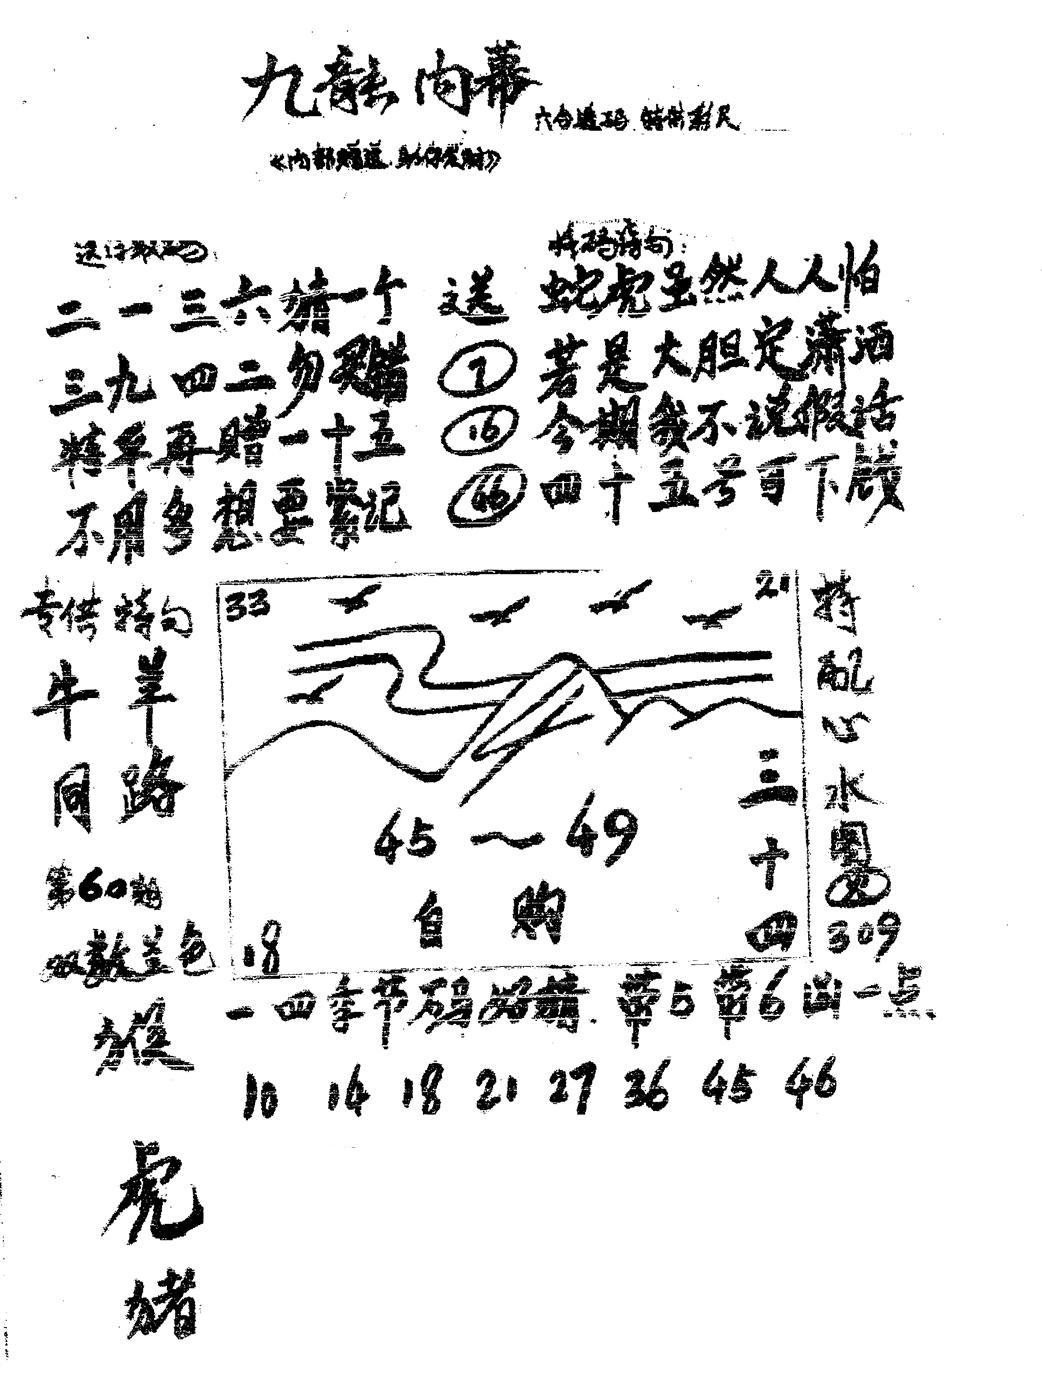 九龍内幕
六合透码 特供彩民
《内部赠送 助你发财》
送行数码
二一三六猜一个
三九四二勿买错
精华再赠一十五
不用多想要紧记
文送
7
16
46
特码诗句:
蛇虎虽然人人怕
若是大胆定潇洒
今期我不说假话
四十五号可下钱
专供特句
牛羊
同路
第60期
双数兰色
猴
虎
猪
33
21
三十四
45～49
自购
18
特配心水图
309
一四季节码好猜.带5带6出一点
10 14 18 21 27 36 45 46